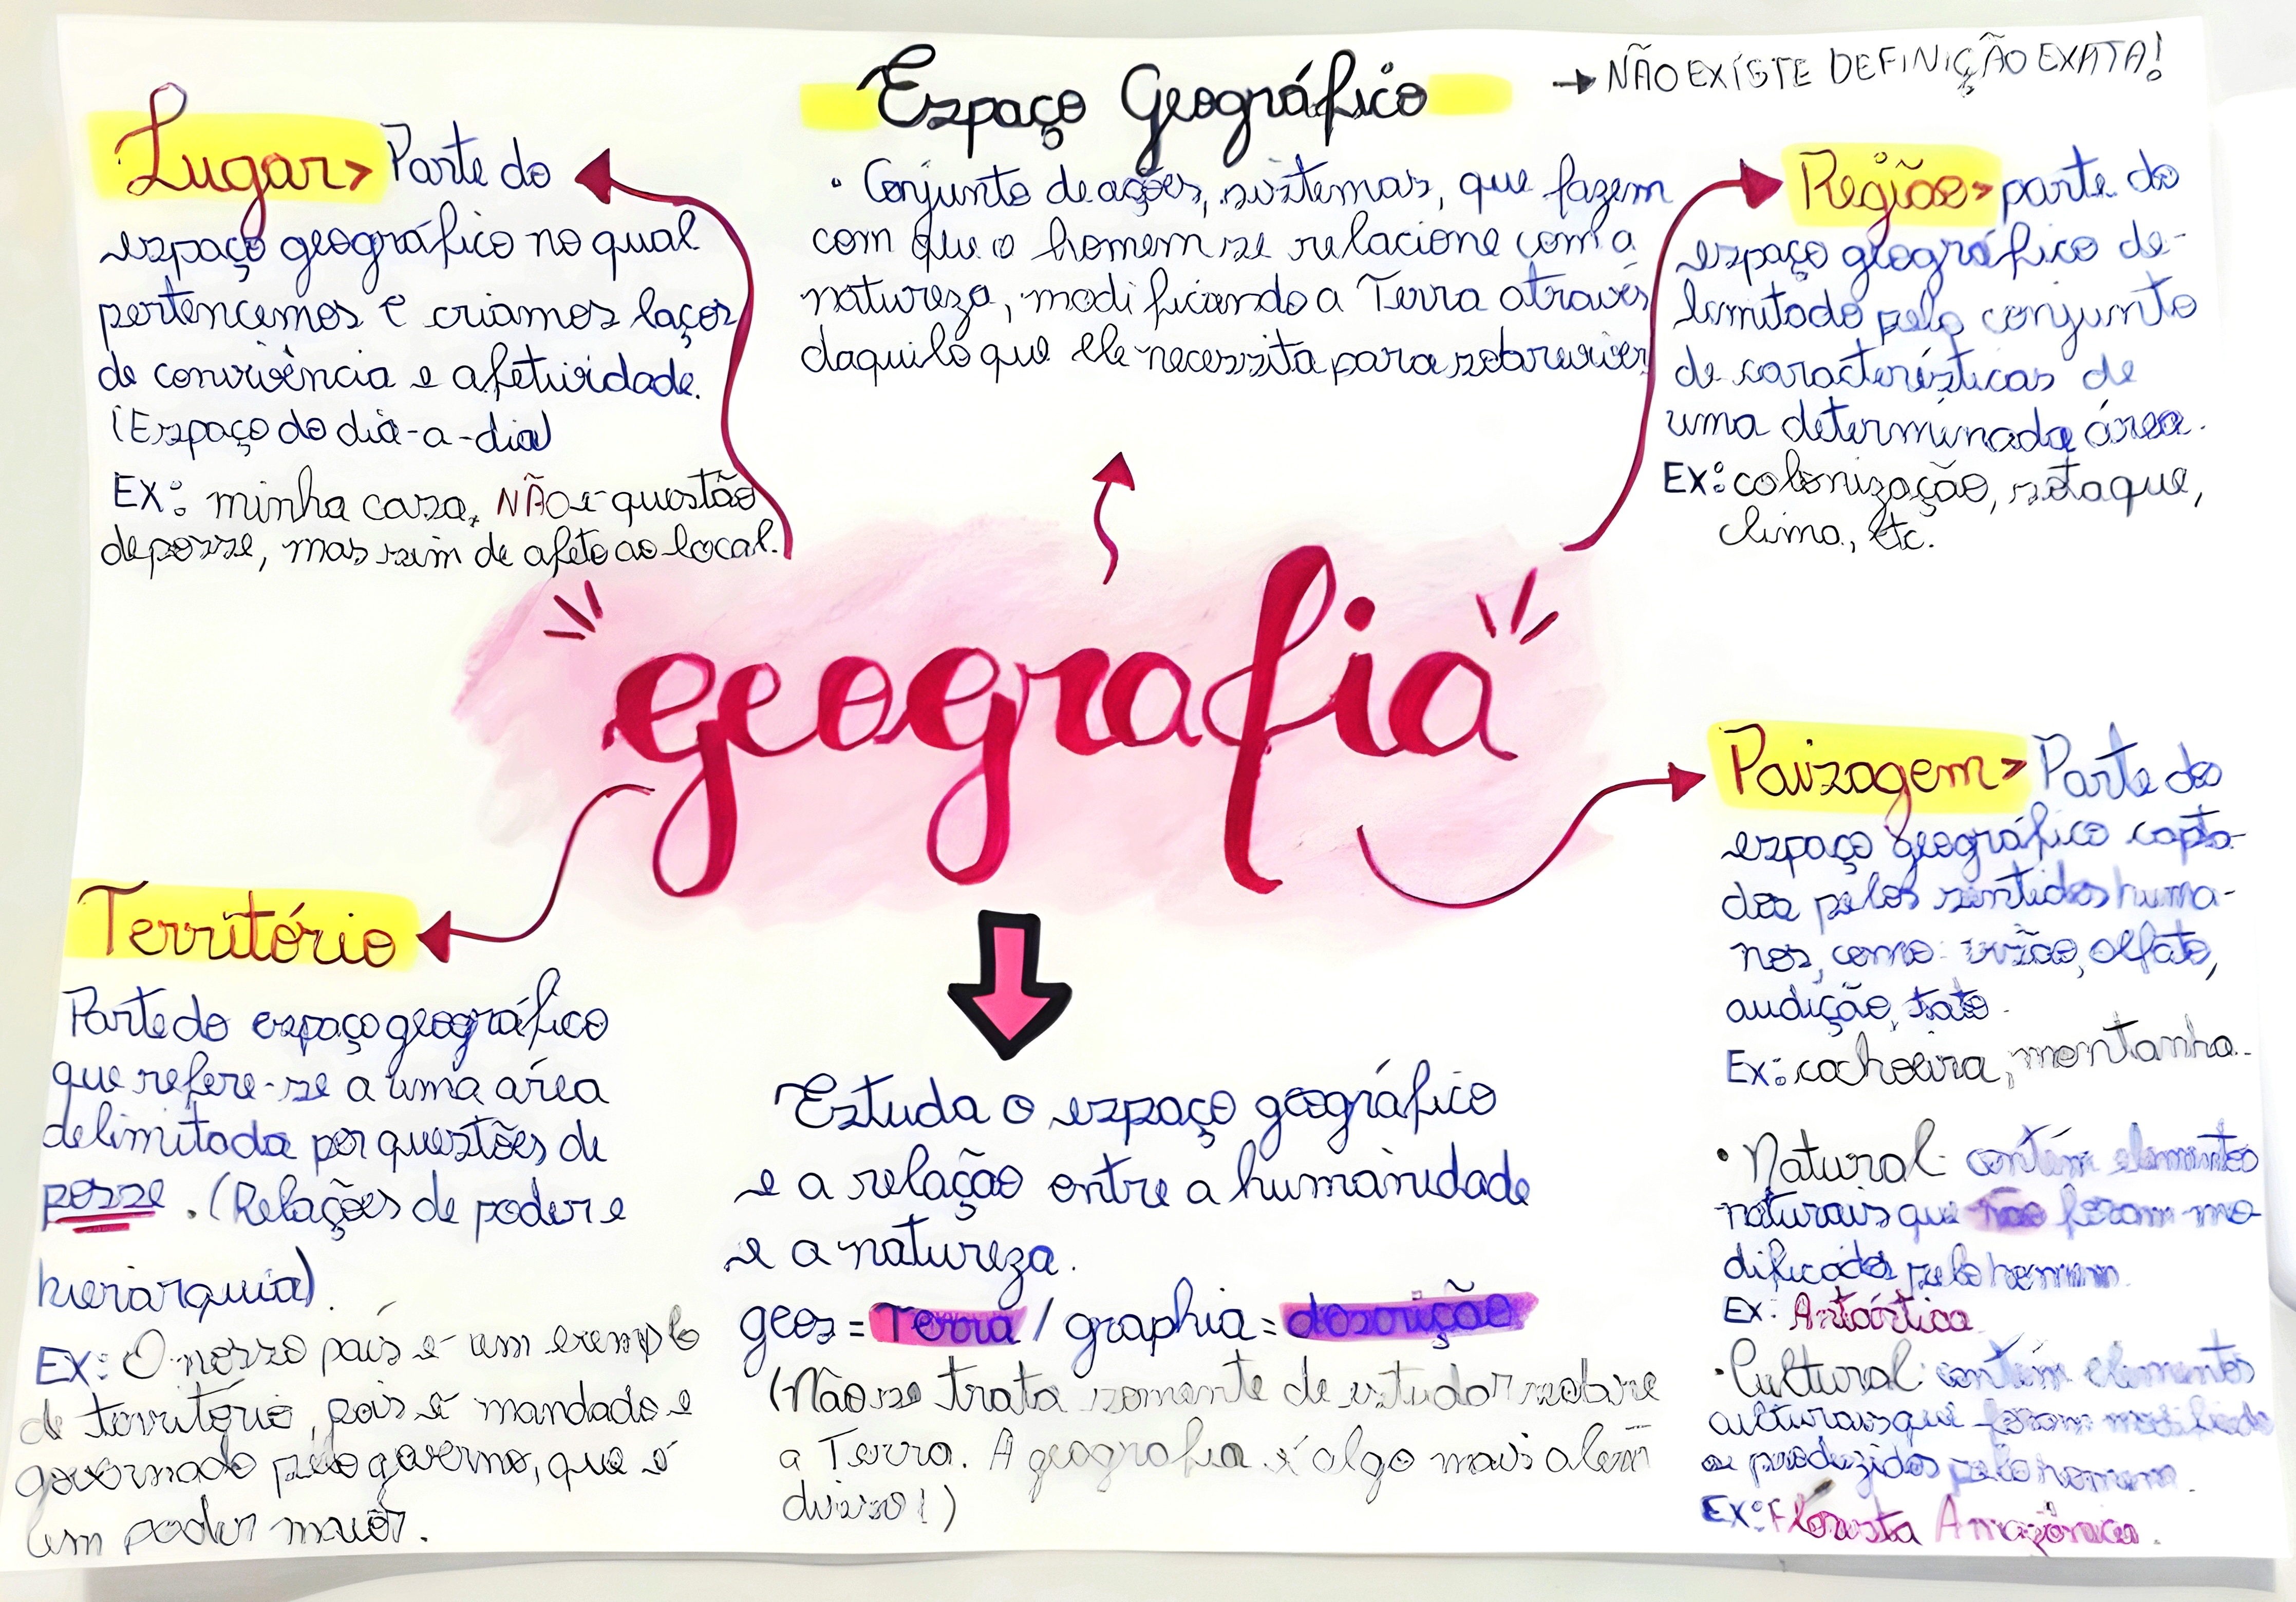 Espaço Geográfico
→ NÃO EXISTE DEFINIÇÃO EXATA!
• Conjunto de ações, sistemas, que fazem
com que o homem se relacione com a
natureza, modificando a Terra através
daquilo que ele necessita para sobreviver
Lugar > Parte do
espaço geográfico no qual
pertencemos e criamos laços
de convivência e afetividade.
(Espaço do dia-a-dia)
EX: minha casa, NÃO é questão
de posse, mas sim de afeto ao local.
Região > parte do
espaço geográfico de-
limitado pelo conjunto
de características de
uma determinada área.
EX: colonização, sotaque,
clima, etc.
"geografia"
Território
Parte do espaço geográfico
que refere-se a uma área
delimitada por questões de
posse. (Relações de poder e
hierarquia).
EX: O nosso país é um exemplo
de território, pois é mandado e
governado pelo governo, que é
um poder maior.
Estuda o espaço geográfico
e a relação entre a humanidade
e a natureza.
geos = Terra / graphia = descrição
(Não se trata somente de estudar sobre
a Terra. A geografia é algo mais além
disso!)
Paisagem > Parte do
espaço geográfico capta-
da pelos sentidos huma-
nos, como: visão, olfato,
audição, tato.
Ex: cachoeira, montanha..
• Natural: contém elementos
naturais que não foram mo
dificados pelo homem.
EX: Antártica
• Cultural: contém elementos
culturais que foram modificado
ou produzidos pelo homem.
EX: Floresta Amazônica.